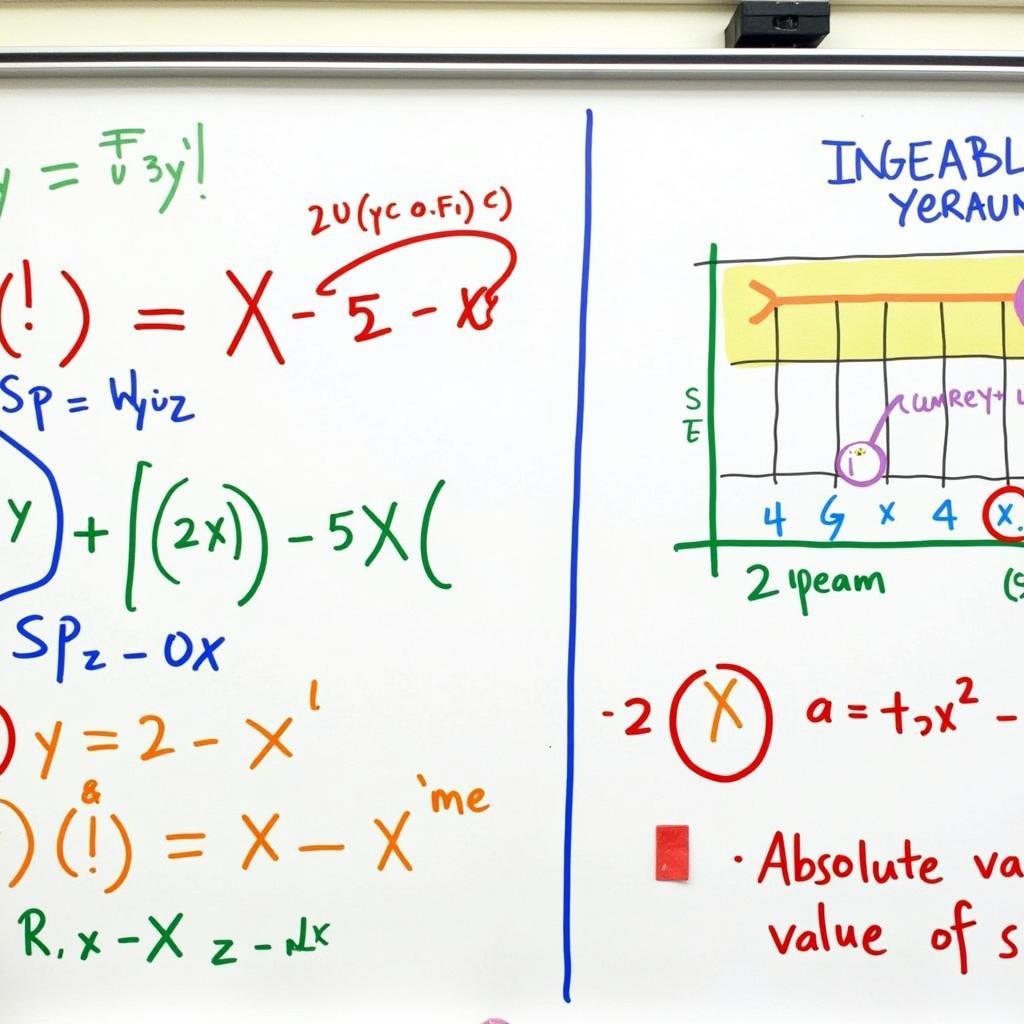 y = 3y'!
2U(yc o.F1) c)
(!) = X - 5 - x
Sp =
y + [((2x)) - 5X(
SPz - 0X
y = 2 - X'
&
)(!) = X - X 'me
R, x - X z -
INGEABL
YERAUN
S
E
i
4 G x 4 x.
2 ipeam (s
-2 X a = x² -
· Absolute va
value of s